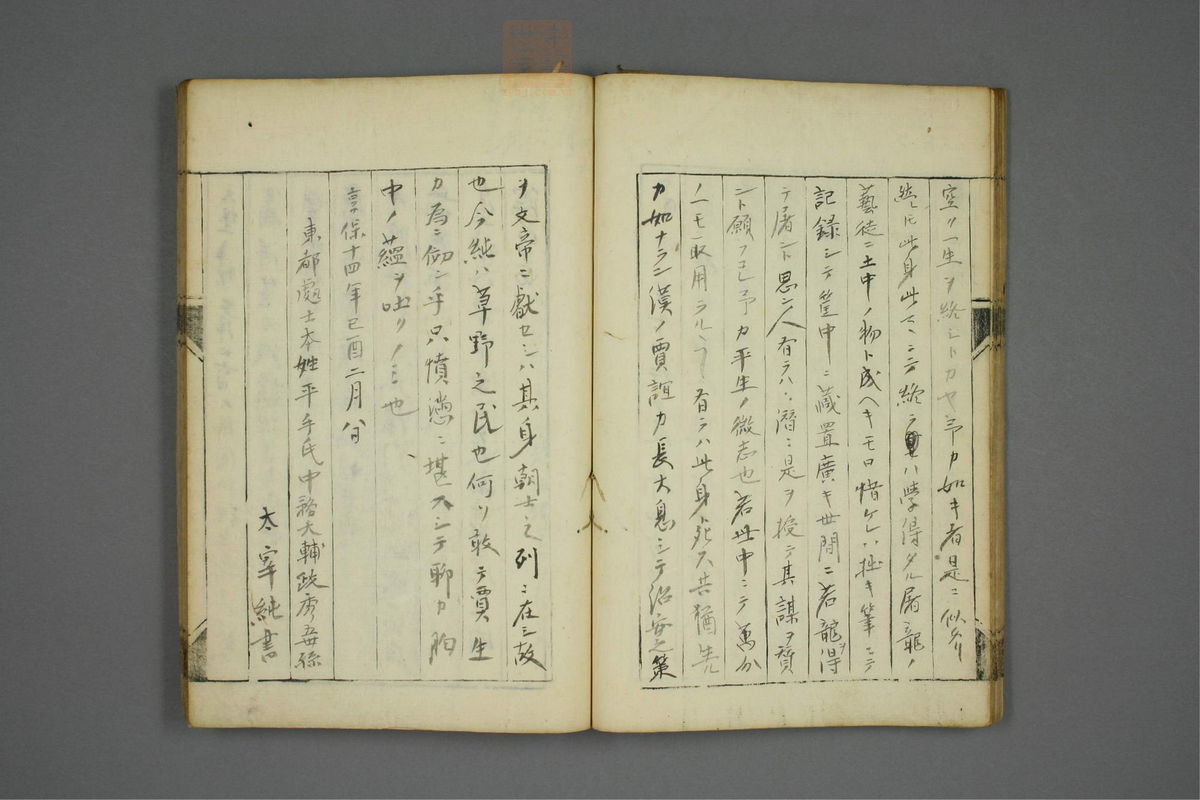 空ク一生ヲ終シトカヤ予カ如キ者是ニ似タリ
縦此身此マヽニテ終ラハ学得タル屠龍ノ
藝徒ニ土中ノ物ト成ヘキモ口惜ケレハ拙キ筆ニテ
記録シテ筐中ニ蔵置廣キ世間ニ若龍ヲ得
テ屠ント思ン人有ラハ潜ニ是ヲ授テ其謀ヲ賛
ント願フコレ予カ平生ノ微志也若世中ニテ萬分
ノ一モ取用ラルヽ有ラハ此身死ス共猶生
カ如ナラン漢ノ賈誼カ長大息シテ治安之策
ヲ文帝ニ獻セシハ其身朝士之列ニ在シ故
也今純ハ草野之民也何ソ敢テ賈生
カ為ニ倣ン乎只憤懣ニ堪スシテ聊カ胸
中ノ蘊ヲ吐クノミ也
享保十四年己酉二月
東都處士本姓平手氏中務大輔政秀孫
太宰純書